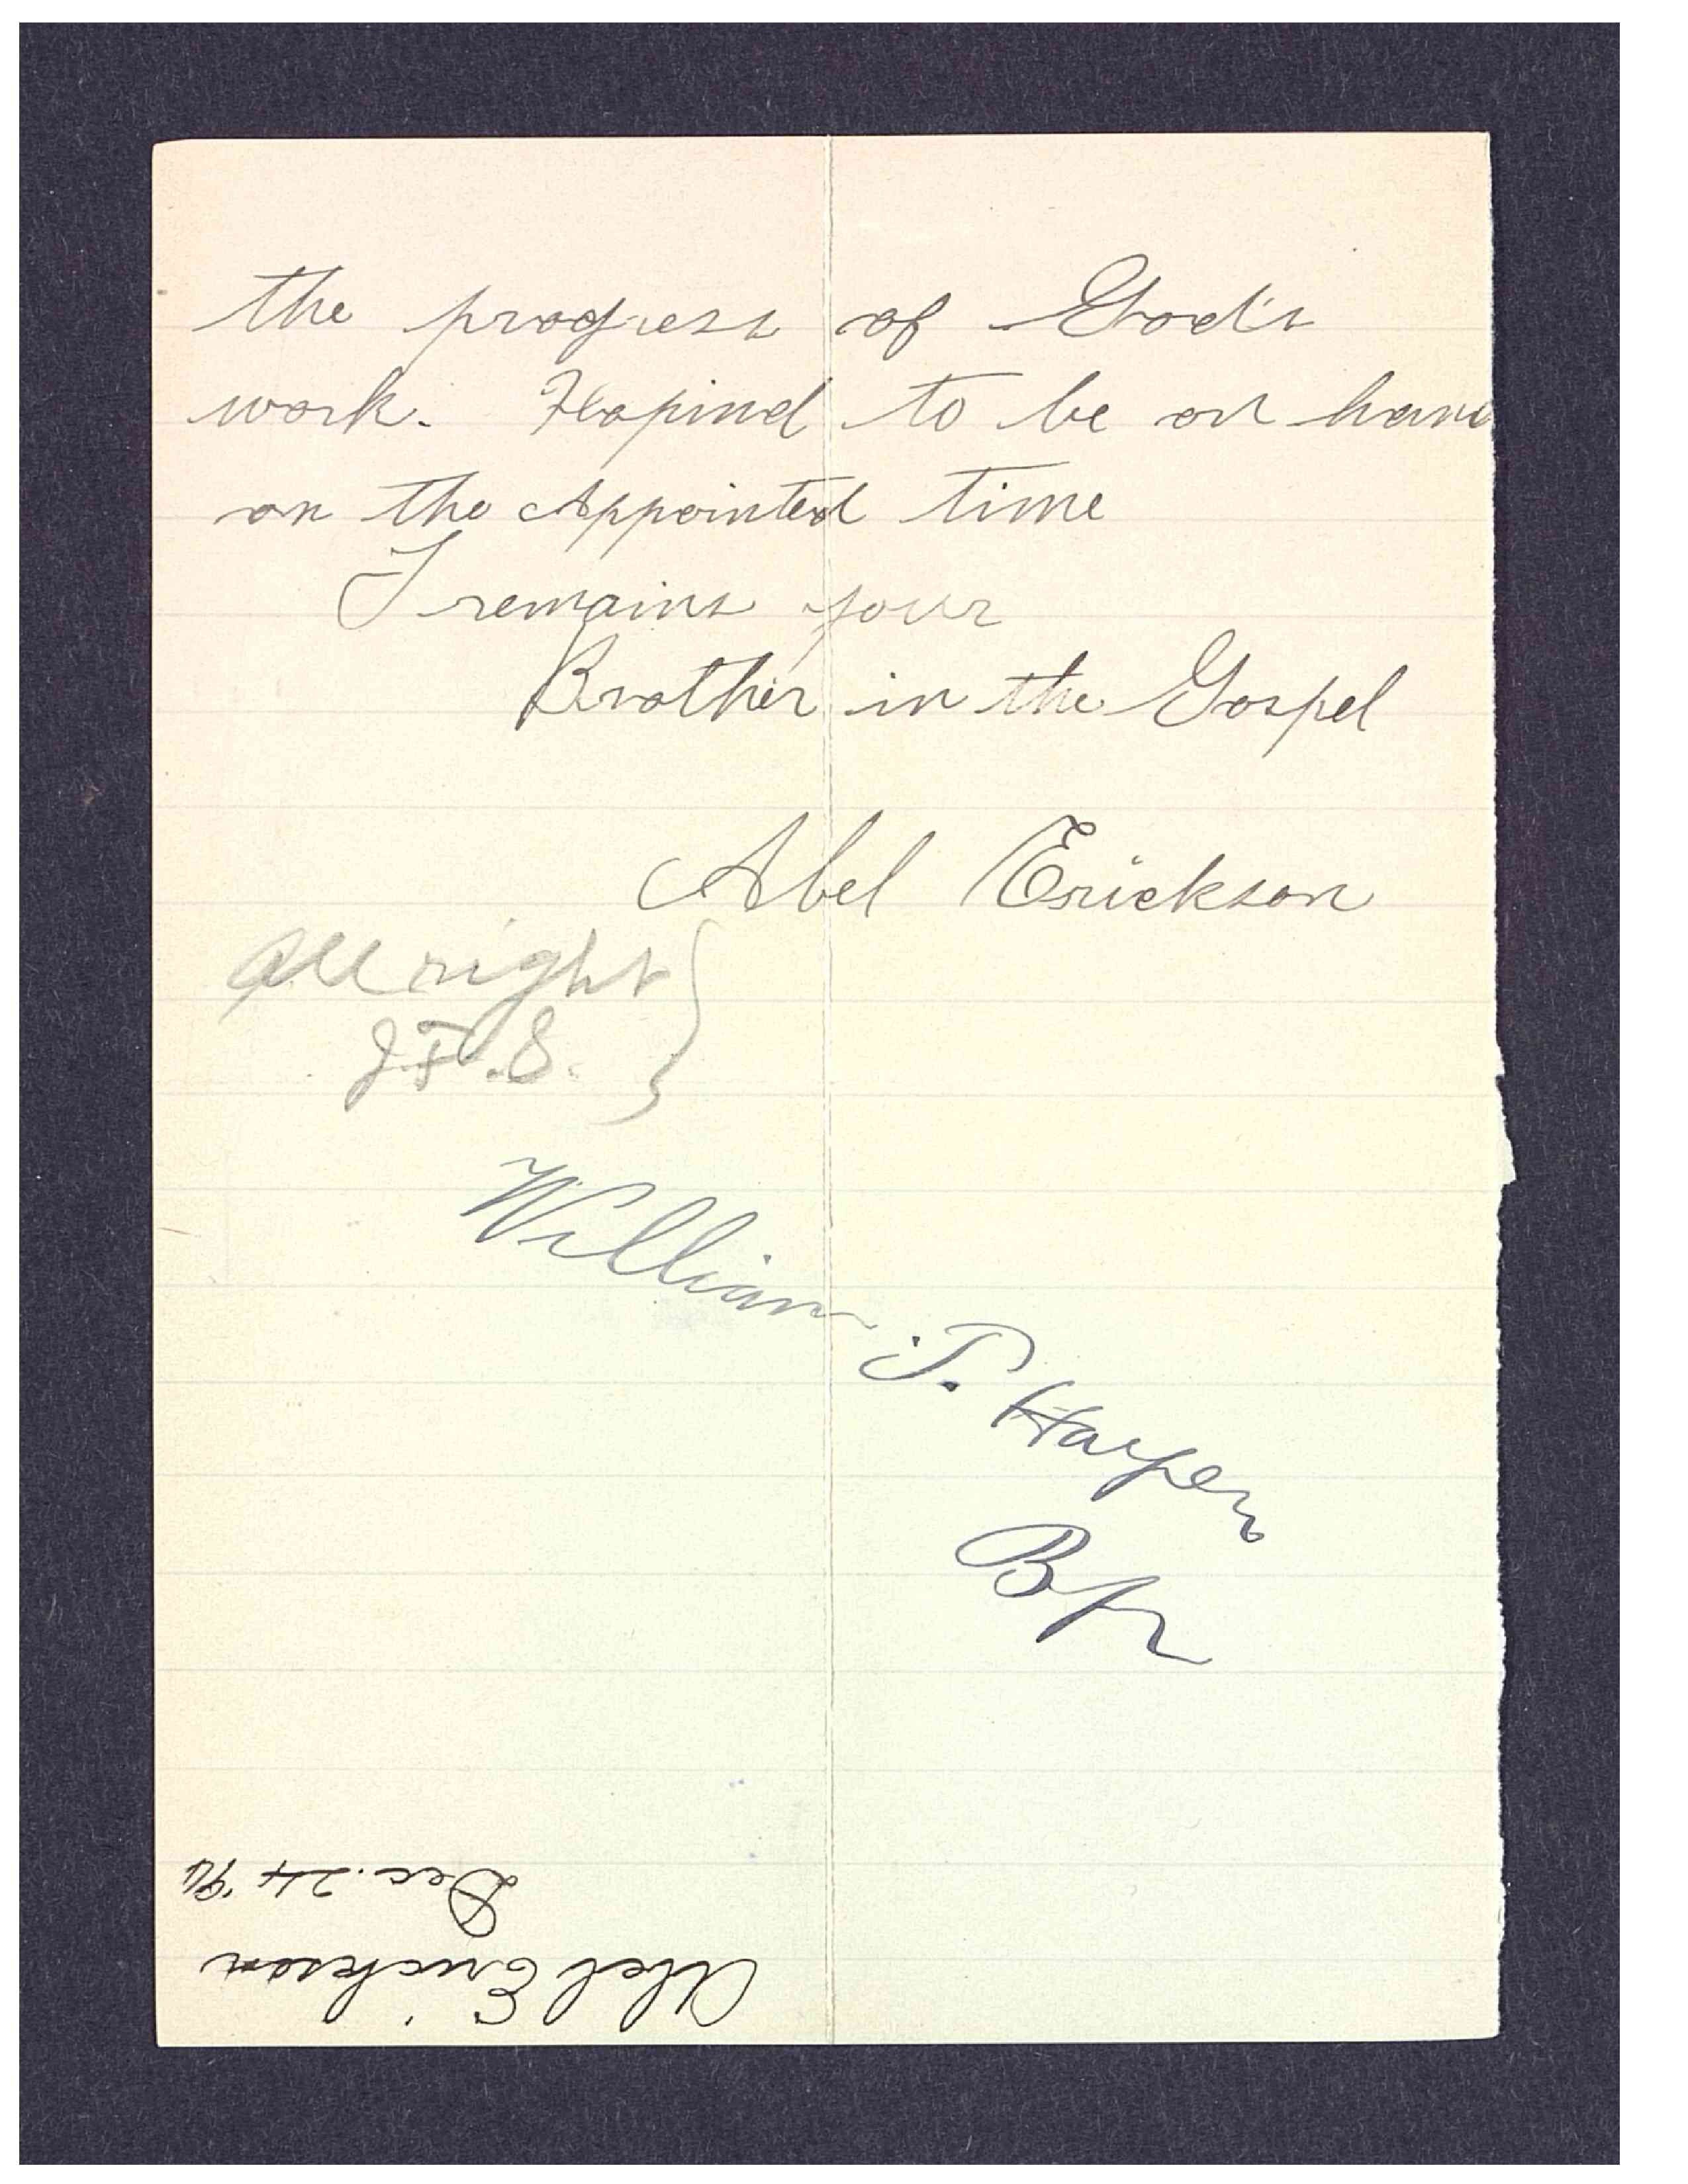 the progress of God's
work. Hopind to be on hand
on the Appointed time
I remains your
Brother in the Gospel
Abel Erickson
All right
J.F.S.
William T. Harper
Bp
Abel Erickson
Dec. 24